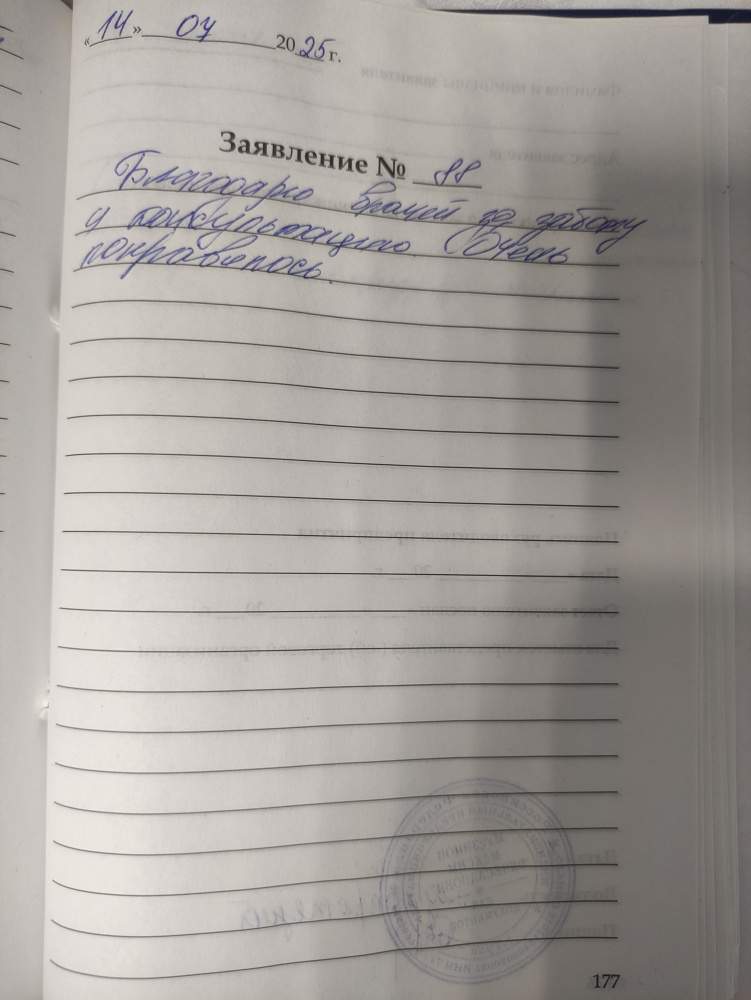 «14» 07 2025 г.
Заявление № 88
Благодарю врачей за заботу
и консультацию. Очень
понравилось.
177